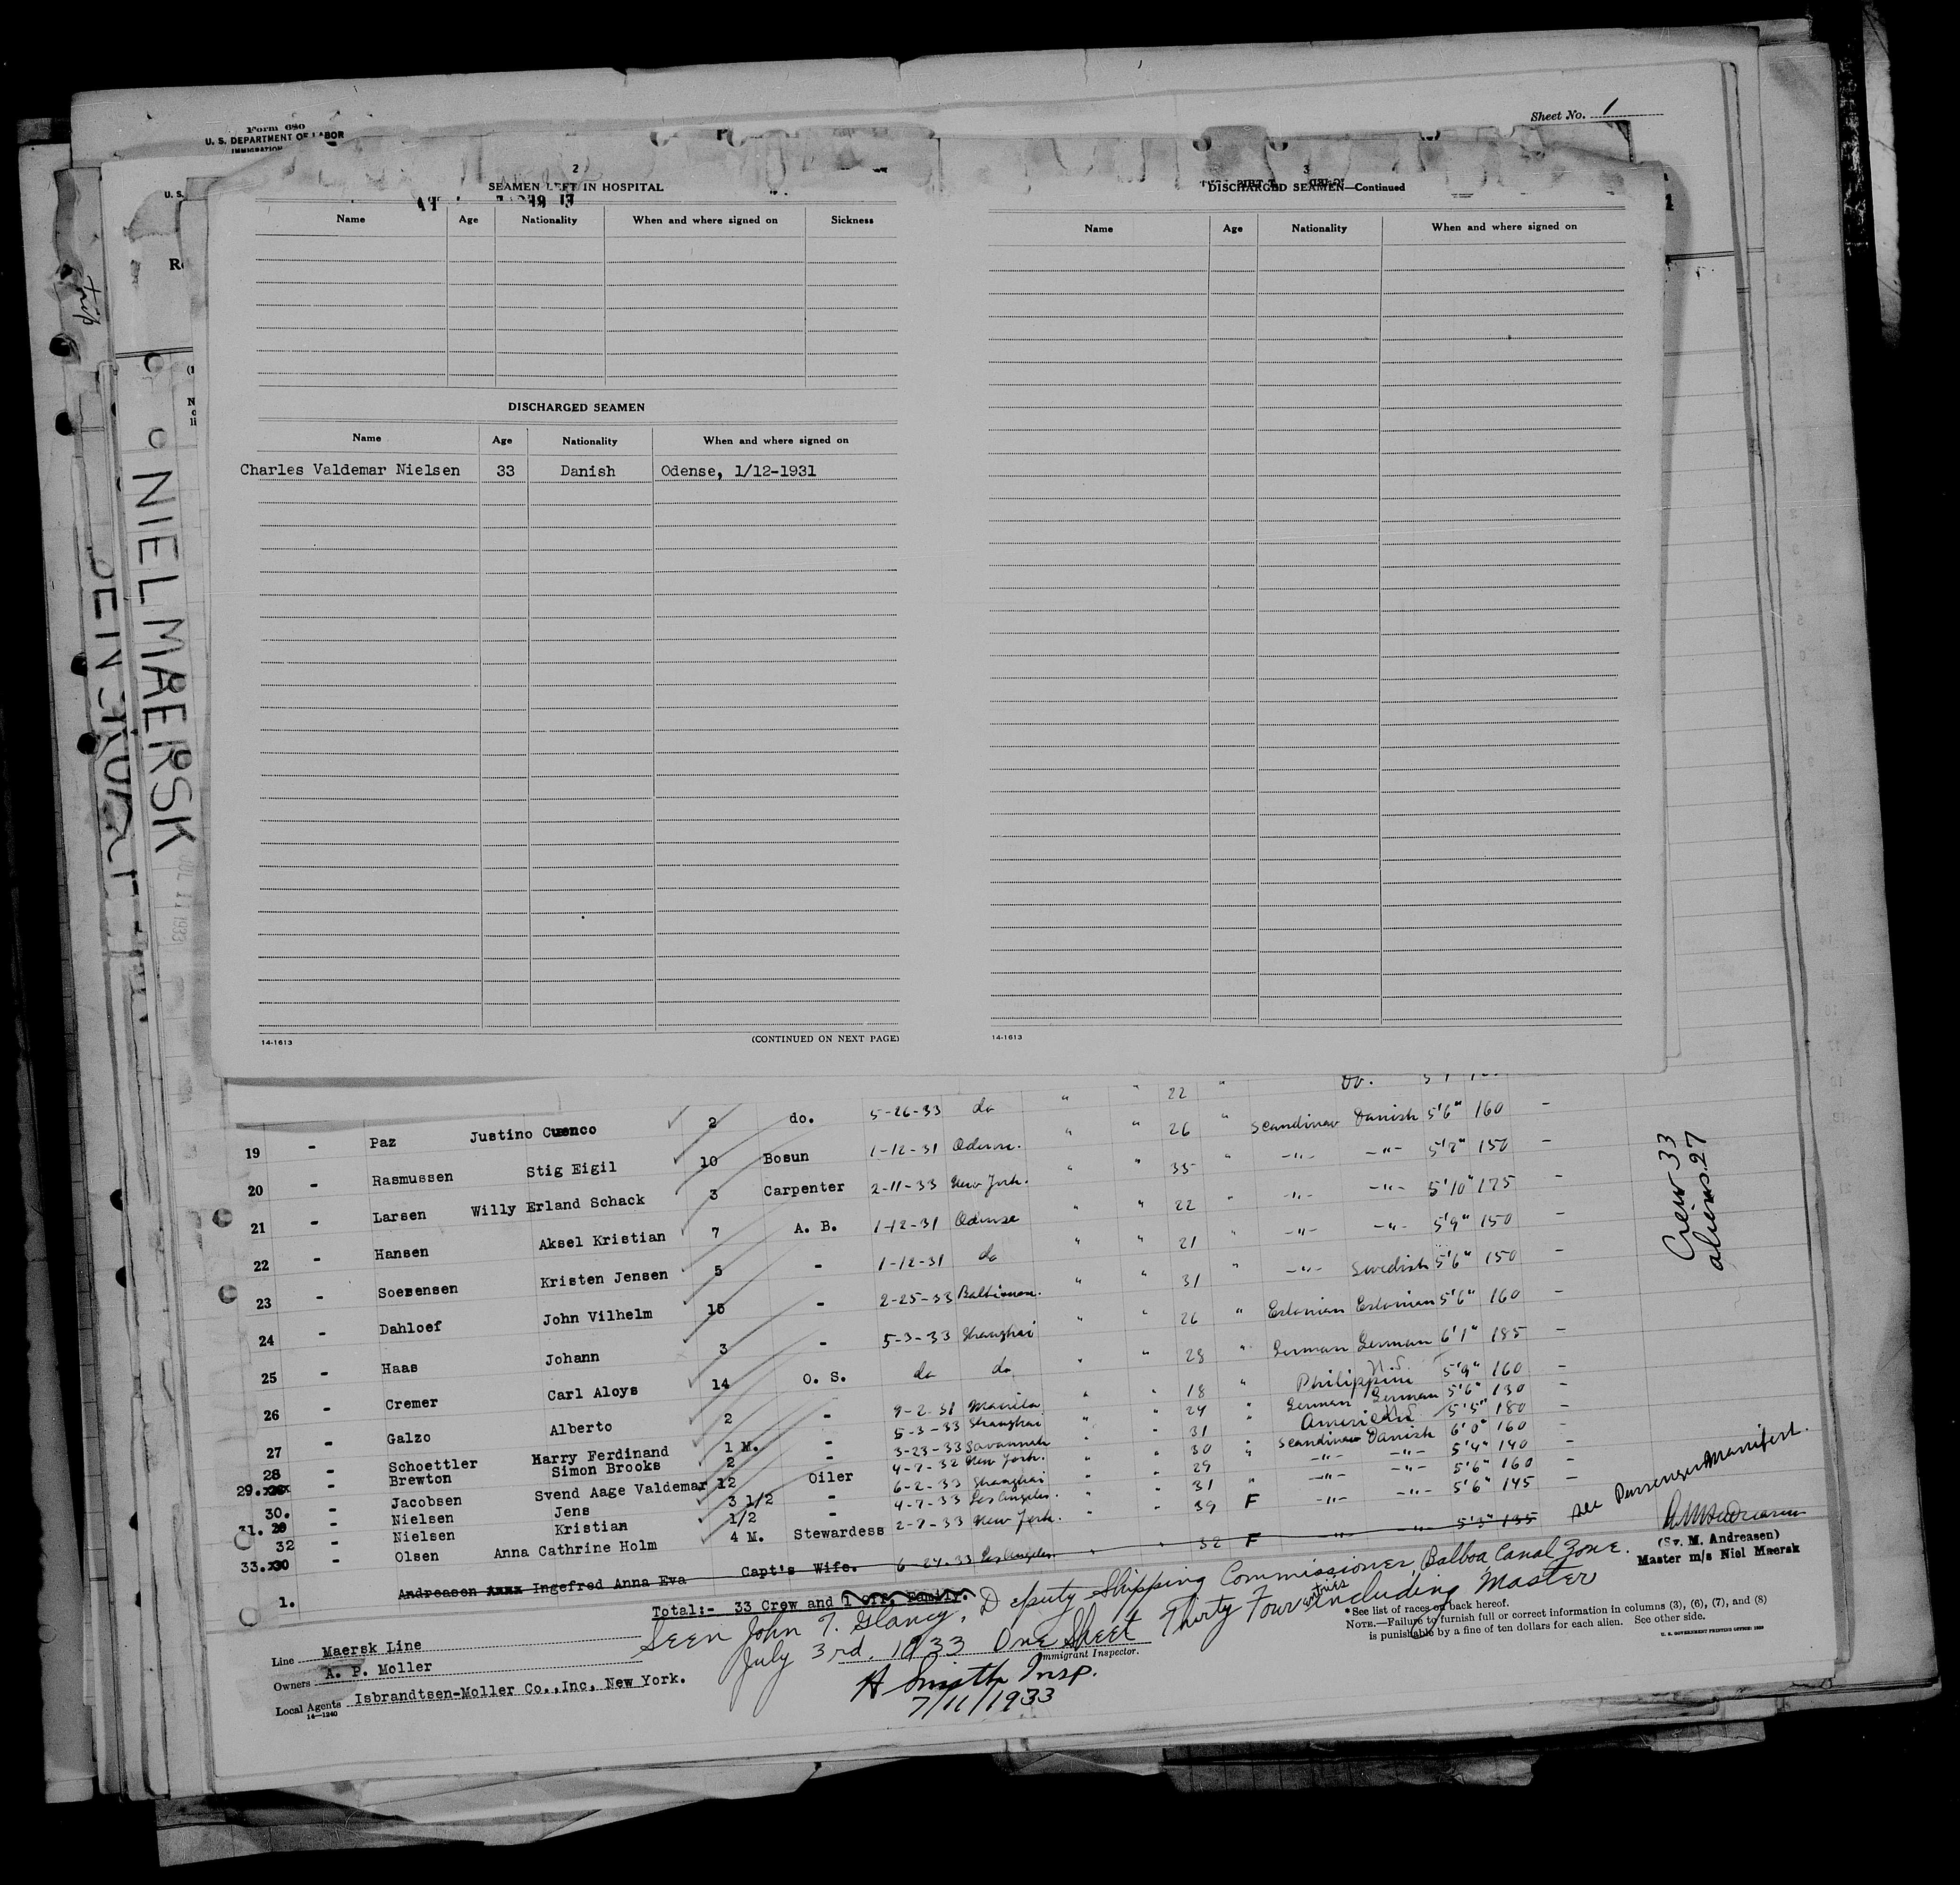 Form 680
U. S. DEPARTMENT OF LABOR
IMMIGRATION
Sheet No. 1
2
SEAMEN LEFT IN HOSPITAL
Name Age Nationality When and where signed on Sickness
DISCHARGED SEAMEN
Name Age Nationality When and where signed on
Charles Valdemar Nielsen 33 Danish Odense, 1/12-1931
14-1613 (CONTINUED ON NEXT PAGE)
3
DISCHARGED SEAMEN—Continued
Name Age Nationality When and where signed on
14-1613
trip
NIEL MAERSK
JUL 11 1933
" " 22 "
19 - Paz Justino Cuenco 2 do. 5-26-33 do " " 26 " Scandinav Danish 5'6" 160 -
20 - Rasmussen Stig Eigil 10 Bosun 1-12-31 Odense. " " 35 " -"- -"- 5'7" 150 -
21 - Larsen Willy Erland Schack 3 Carpenter 2-11-33 New York. " " 22 " -"- -"- 5'10" 175 -
22 - Hansen Aksel Kristian 7 A. B. 1-12-31 Odense " " 21 " -"- -"- 5'9" 150 -
23 - Soerensen Kristen Jensen 5 - 1-12-31 do " " 31 " -"- Swedish 5'6" 150 -
24 - Dahloef John Vilhelm 15 - 2-25-33 Baltimore. " " 26 " Estonian Estonian 5'6" 160 -
25 - Haas Johann 3 - 5-3-33 Shanghai " " 28 " German German 6'1" 185 -
26 - Cremer Carl Aloys 14 O. S. do do " " 18 " Philippine 5'9" 160 -
27 - Galzo Alberto 2 - 9-2-31 Manila " " 24 " German German 5'6" 130 -
28 - Schoettler Harry Ferdinand 1 M. - 5-3-33 Shanghai " " 31 " American 5'5" 180 -
29. - Brewton Simon Brooks 2 - 3-23-33 Savannah " " 30 " Scandinav Danish 6'0" 160
30. - Jacobsen Svend Aage Valdemar 12 Oiler 4-7-32 New York. " " 29 -"- -"- 5'4" 140 -
31. - Nielsen Jens 3 1/2 - 6-2-33 Shanghai " " 31 " -"- -"- 5'6" 160 -
32 - Nielsen Kristian 1/2 - 4-7-33 Los Angeles. " " 39 F -"- -"- 5'6" 145 -
33. - Olsen Anna Cathrine Holm 4 M. Stewardess 2-7-33 New York.
1. Andreasen Ingefred Anna Eva Capt's Wife. 6-24-33 Los Angeles " " 32 F -"- -"- 5'3" 135 See Passenger Manifest.
Crew 33
aliens 27
Total:- 33 Crew and 1 off. Family.
(Sv. M. Andreasen)
Master m/s Niel Maersk
Seen John T. Glancy, Deputy Shipping Commissioner, Balboa Canal Zone.
July 3rd, 1933 One Sheet Thirty Four entries including Master
Immigrant Inspector.
H Smith Insp.
7/11/1933
Line Maersk Line
Owners A. P. Moller
Local Agents Isbrandtsen-Moller Co.,Inc, New York.
14—1240
* See list of races on back hereof.
NOTE.—Failure to furnish full or correct information in columns (3), (6), (7), and (8)
is punishable by a fine of ten dollars for each alien. See other side.
U. S. GOVERNMENT PRINTING OFFICE